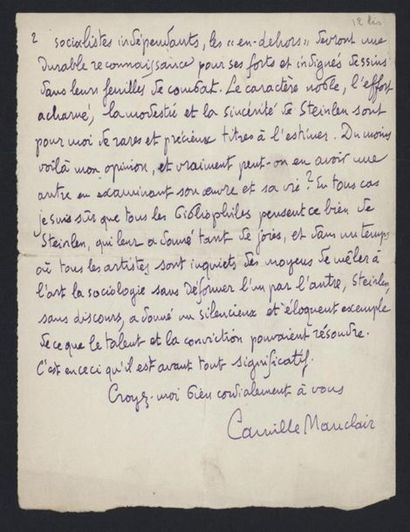 12 bis
2 socialistes indépendants, les "en-dehors" devront une
durable reconnaissance pour ses forts et indignés dessins
dans leurs feuilles de combat. Le caractère noble, l'effort
acharné, la modestie et la sincérité de Steinlen sont
pour moi de rares et précieux titres à l'estime. Du moins
voilà mon opinion, et vraiment peut-on en avoir une
autre en examinant son œuvre et sa vie ? En tous cas
je suis sûr que tous les bibliophiles pensent ce bien de
Steinlen, qui leur a donné tant de joies, et dans un temps
où tous les artistes sont inquiets des moyens de mêler à
l'art la sociologie sans déformer l'un par l'autre, Steinlen
sans discours, a donné un silencieux et éloquent exemple
de ce que le talent et la conviction pouvaient résoudre.
C'est en ceci qu'il est avant tout significatif.
Croyez-moi bien cordialement à vous
Camille Mauclair